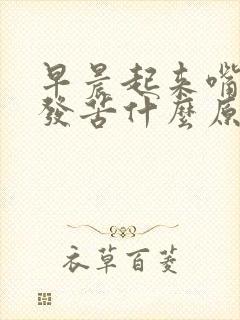 早晨起来嘴
發苦什麼原
衣草百菱